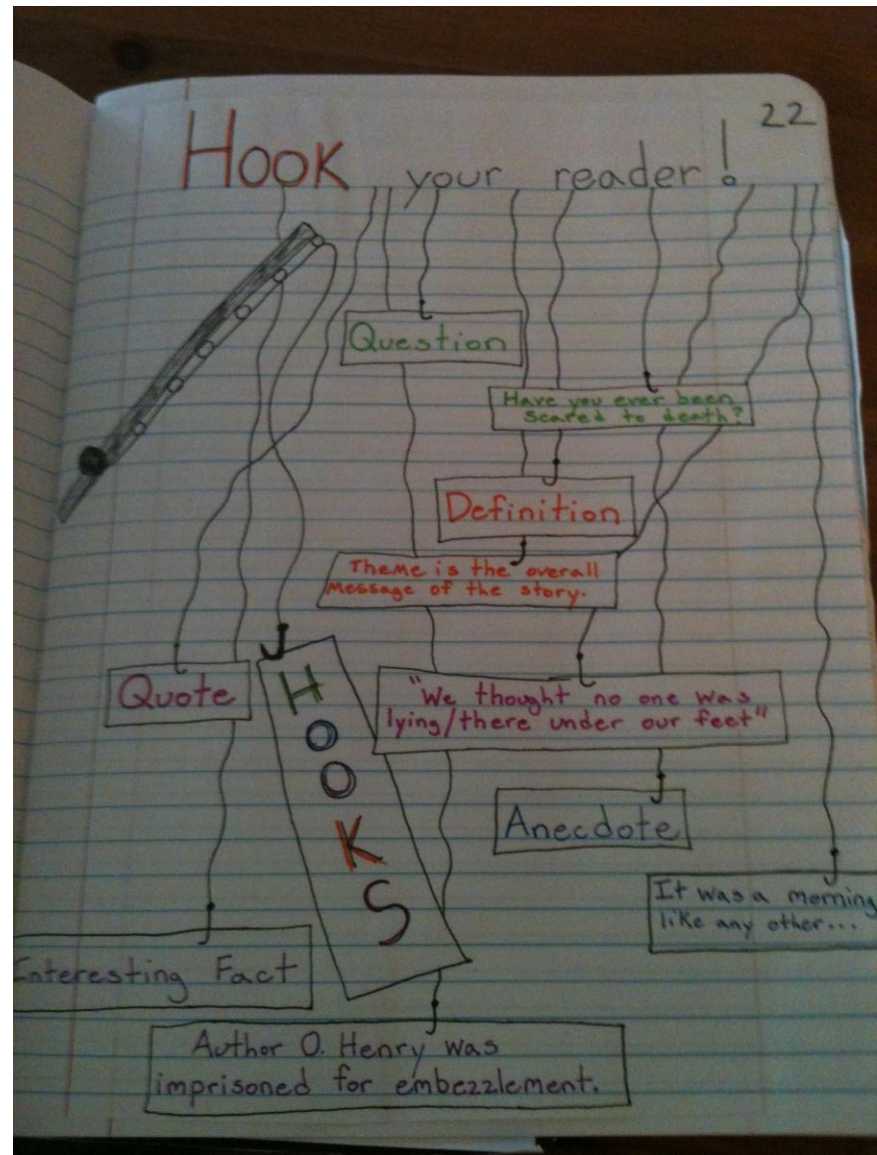 22
HOOK your reader!
Question
Have you ever been
scared to death?
Definition
Theme is the overall
message of the story.
Quote
HOOKS
"We thought no one was
lying/there under our feet"
Anecdote
It was a morning
like any other...
Interesting Fact
Author O. Henry was
imprisoned for embezzlement.